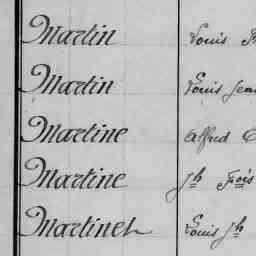 Martin Louis
Martin Louis Jean
Martine Alfred
Martine Jh Frois
Martinet Louis Jh